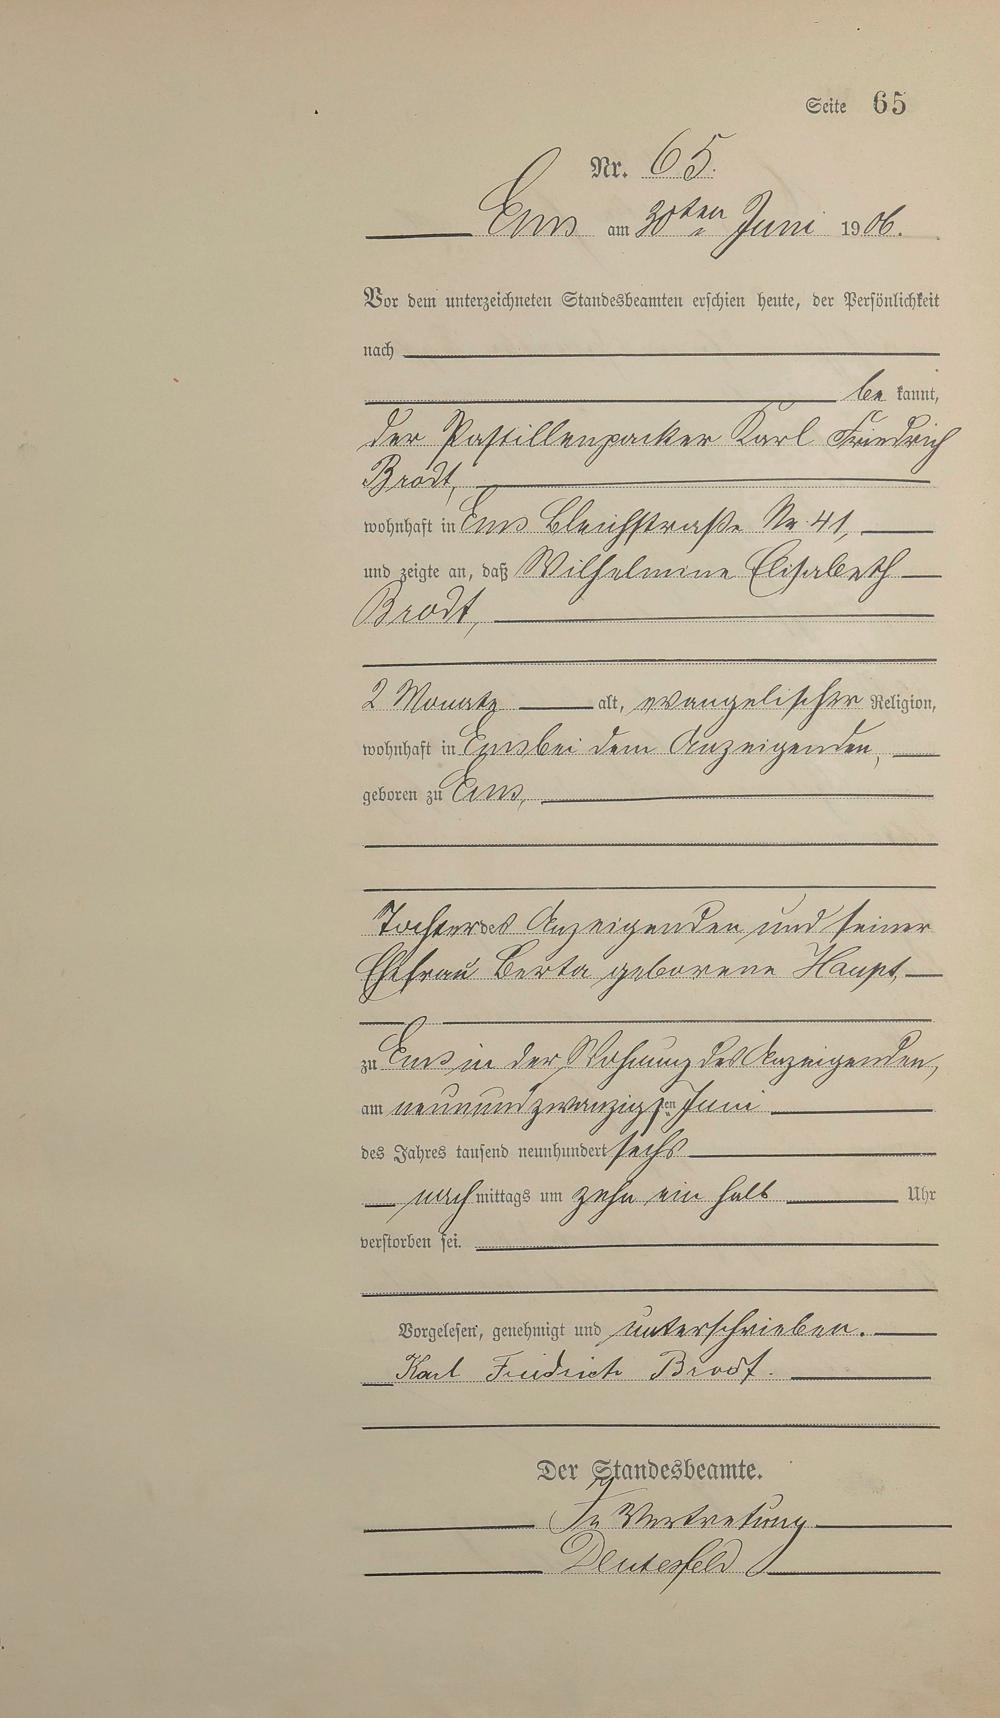 Seite 65
Nr. 65.
Ems am 30ten Juni 1906.
Vor dem unterzeichneten Standesbeamten erschien heute, der Persönlichkeit
nach
be kannt,
der Pastillenpacker Karl Friedrich
Brodt,
wohnhaft in Ems Bleichstraße Nr. 41,
und zeigte an, daß Wilhelmine Elisabeth
Brodt,
2 Monate alt, evangelischer Religion,
wohnhaft in Ems bei dem Anzeigenden,
geboren zu Ems,
Tochter des Anzeigenden und seiner
Ehefrau Berta geborene Haupt,
zu Ems in der Wohnung des Anzeigenden,
am neunundzwanzigsten Juni
des Jahres tausend neunhundert sechs
nachmittags um zehn ein halb Uhr
verstorben sei.
Vorgelesen, genehmigt und unterschrieben.
Karl Friedrich Brodt.
Der Standesbeamte.
In Vertretung